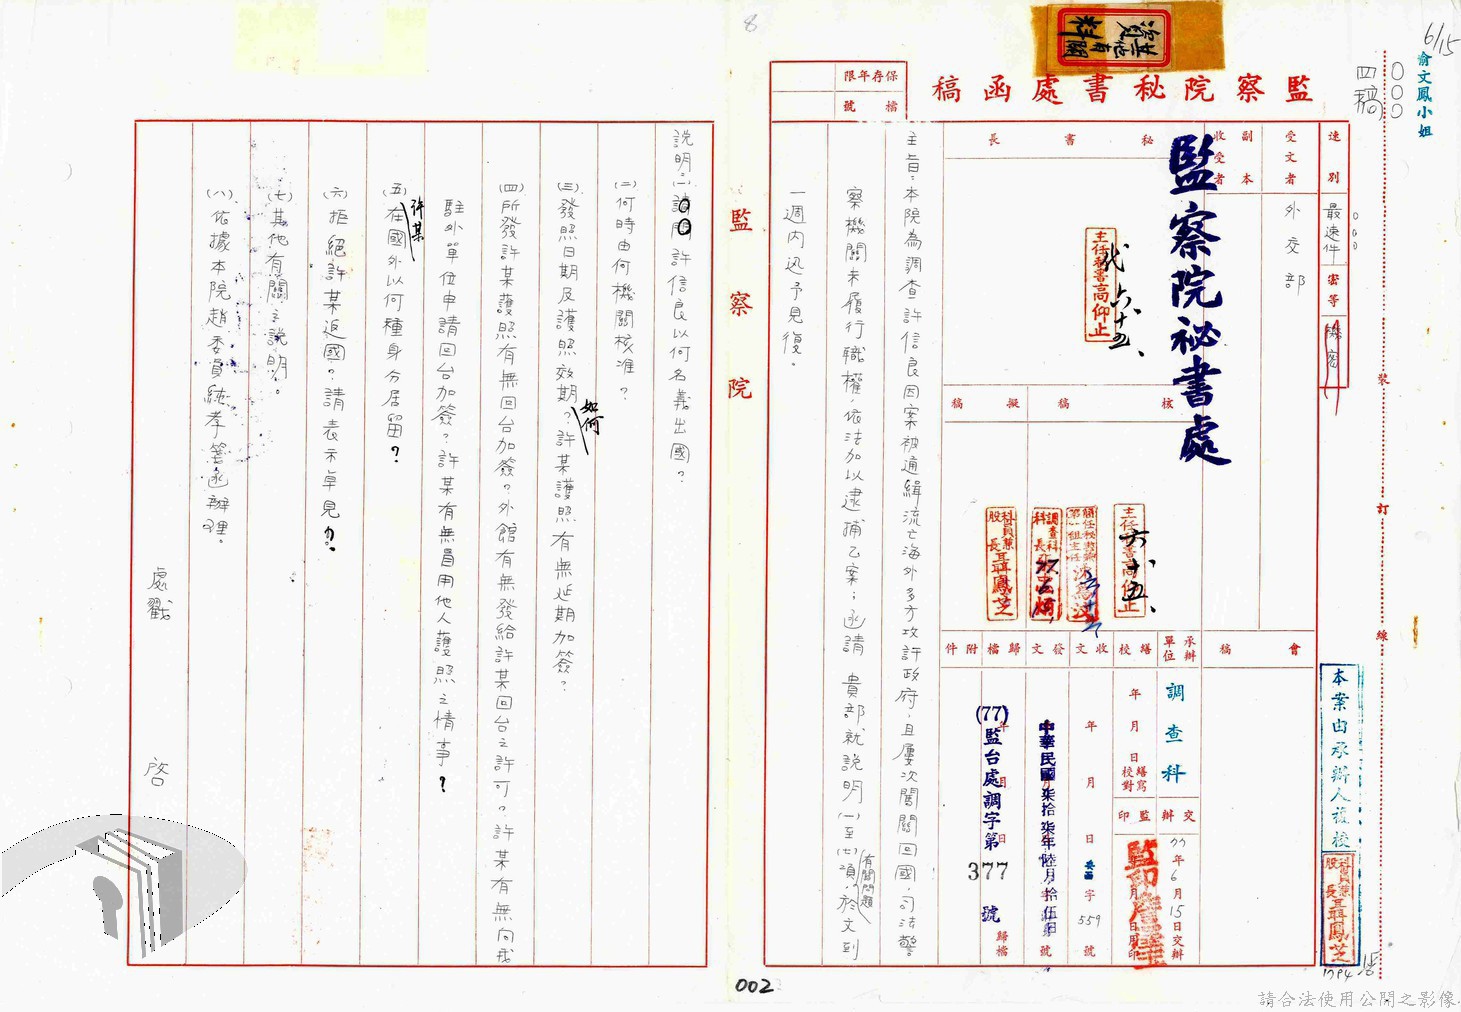 6/15
俞文鳳小姐
四稿
其他有關
資料
8
監察院秘書處函稿
保存年限
檔號
速別
最速件
密等
機密
受文者
外交部
副本
收受者
監察院祕書處
秘書長
主任秘書高仰止
代
六十五、
核稿
擬稿
主任秘書高仰止
六、十五、
調查科
科長
科員兼
股長
聶鳳芝
會稿
承辦單位
調查科
繕校
年月日繕寫校對
收文
年月日
字559號
發文
中華民國柒拾柒年陸月拾伍日
歸檔
附件
(77)監台處調字第377號
年月日歸檔
交辦
77年6月15日交辦
監印
本案由承辦人複校
科員兼
股長
聶鳳芝
1794
裝
訂
線
主旨：本院為調查許信良因案被通緝流亡海外多方攻訐政府，且屢次闖關回國，司法警
察機關未履行職權，依法加以逮捕乙案；函請　貴部就說明(一)至(七)項有關問題，於文到
一週內迅予見復。
監察院
說明：(一)許信良以何名義出國？
(二)何時由何機關核准？
(三)發照日期及護照效期如何？許某護照有無延期加簽？
(四)所發許某護照有無回台加簽？外館有無發給許某回台之許可？許某有無向我
駐外單位申請回台加簽？許某有無冒用他人護照之情事？
(五)許某在國外以何種身分居留？
(六)拒絕許某返國？請表示卓見？
(七)其他有關之說明。
(八)依據本院趙委員純孝箋函辦理。
處戳
啓
002
請合法使用公開之影像